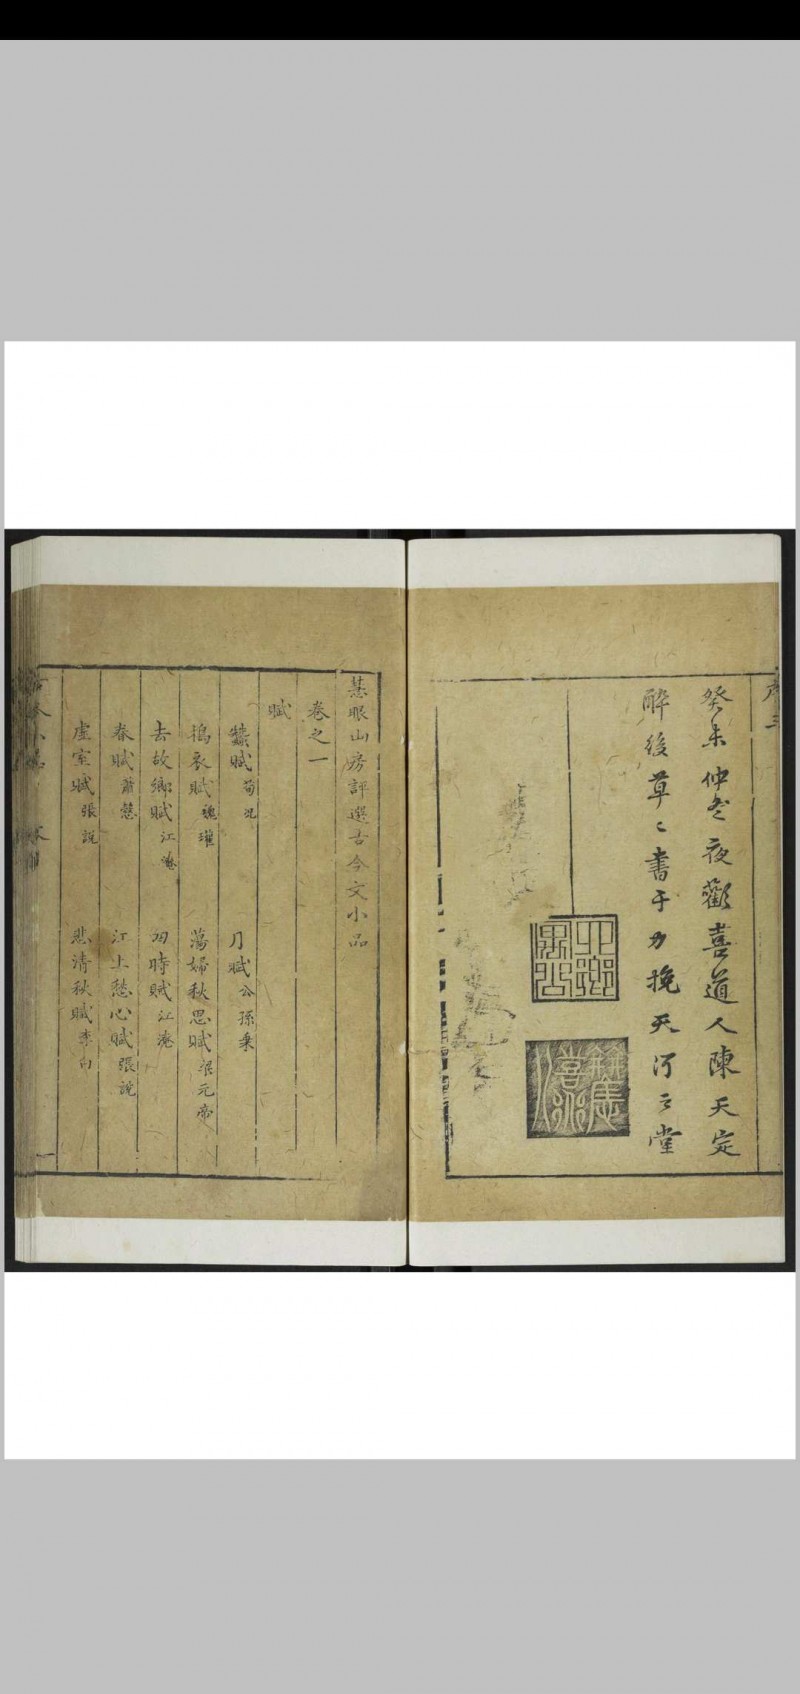 序三
癸未仲冬夜歡喜道人陳天定
醉後草〻書于力挽天河之堂
慧眼山房評選古今文小品
卷之一
賦
蠶賦 荀況 月賦 公孫乘
擣衣賦 魏璀 蕩婦秋思賦 梁元帝
去故鄉賦 江淹 四時賦 江淹
春賦 蕭愨 江上愁心賦 張說
虛室賦 張說 悲清秋賦 李白
古今小品